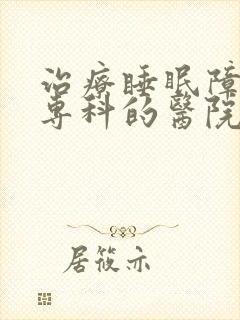 治療睡眠障
專科的醫院
居筱亦